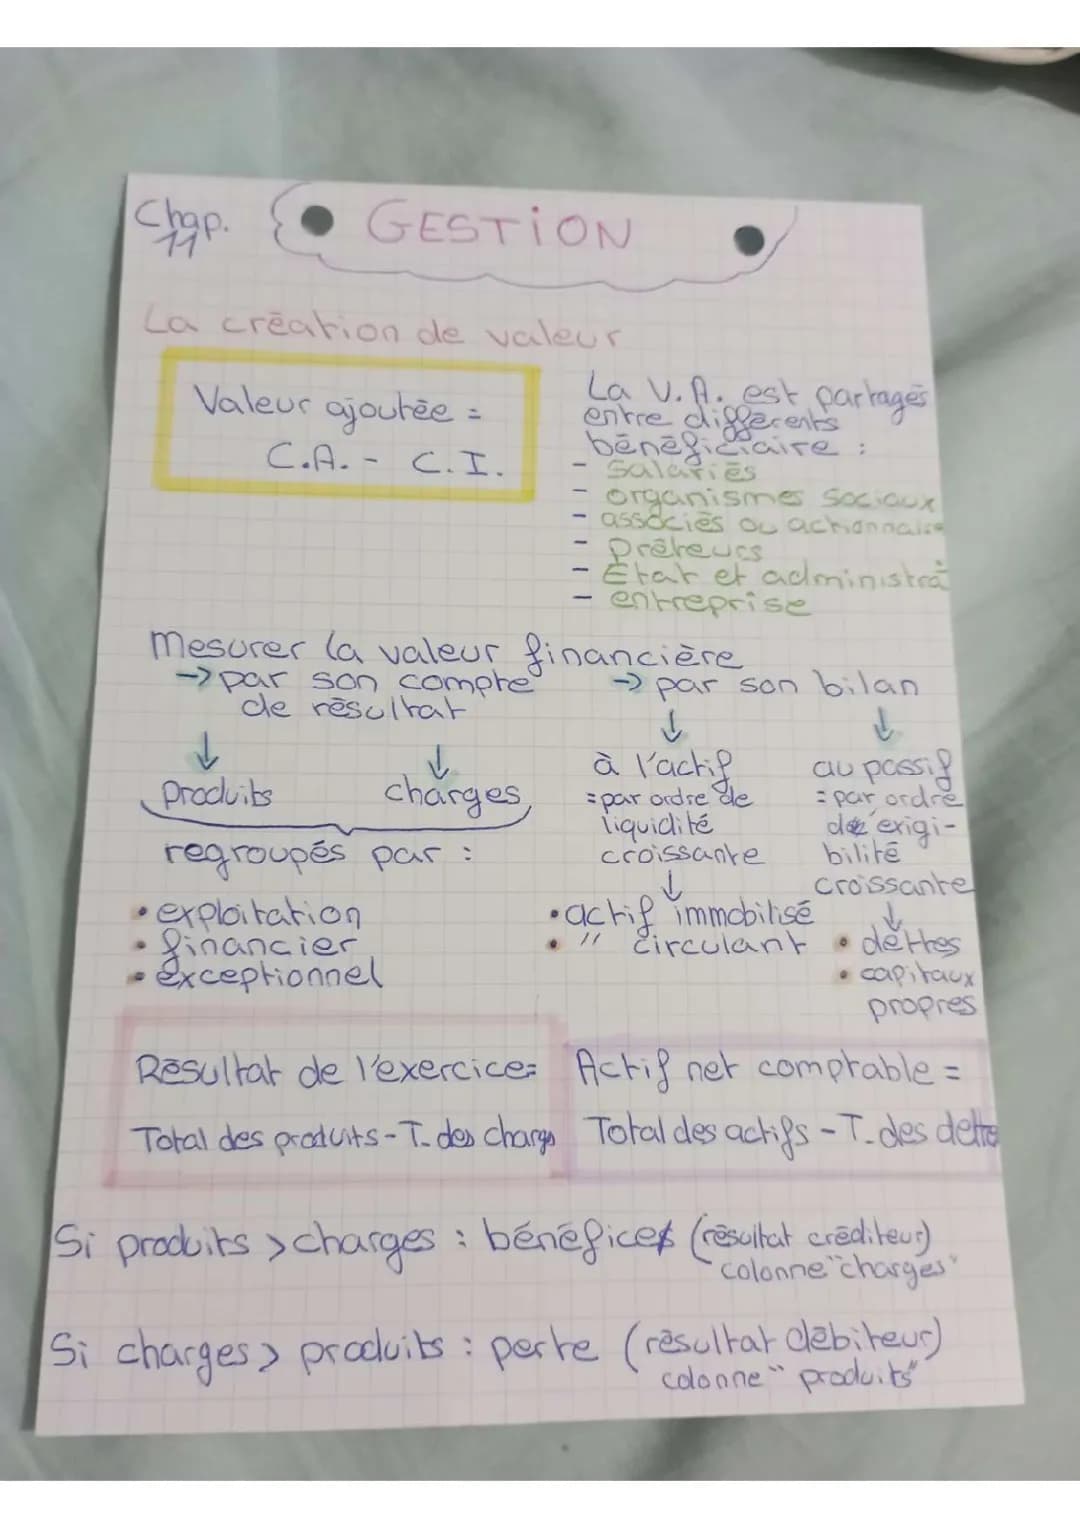 Chap. 11
GESTION
La création de valeur
Valeur ajoutée =
C.A. - C.I.
La V.A. est partagés
entre différents
bénéficiaire :
- Salariés
- organismes sociaux
- associés ou actionnaire
- Prêteurs
- État et administra
- entreprise
Mesurer la valeur financière
→ par son compte
de résultat
↓ ↓
Produits charges
regroupés par :
• exploitation
• financier
• exceptionnel
→ par son bilan
↓ ↓
à l'actif
= par ordre de
liquidité
croissante
↓
• actif immobilisé
• " circulant
au passif
= par ordre
d'exigi-
bilité
croissante
↓
• dettes
• capitaux
propres
Résultat de l'exercice=
Total des produits - T. des charges
Actif net comptable =
Total des actifs - T. des dettes
Si produits > charges : bénéfices (résultat créditeur)
colonne "charges"
Si charges > produits : perte (résultat débiteur)
colonne "produits"